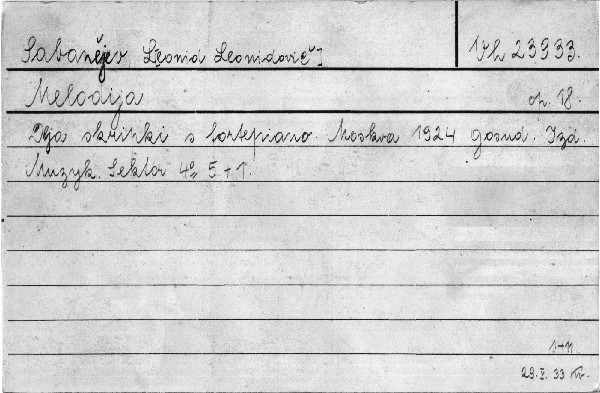 Sabanějev, [Leonid Leonidovič] Vh 23933.
Melodija op. 18.
Dlja skripki s fortepiano. Moskva 1924 gosud. Izd.
Muzyk. Sektor 4° 5+1.
1+1
29. V. 33